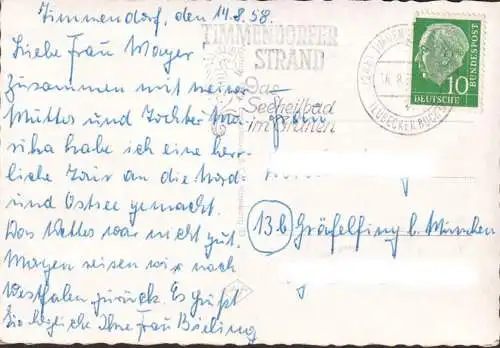 Timmendorf, den 14.8.58.
Liebe Frau Mayer
Zusammen mit meiner
Mutter und Tochter Ma-
rika habe ich eine herr-
liche Tour an die Nord-
und Ostsee gemacht.
Das Wetter war nicht gut.
Morgen reisen wir nach
Westfalen zurück. Es grüßt
Sie herzliche Ihre Frau
TIMMENDORFER
STRAND
Das
Seeheilbad
im Grünen
(LÜBECKER BUCHT)
10
DEUTSCHE
BUNDESPOST
Frau
13b Gräfelfing b. München